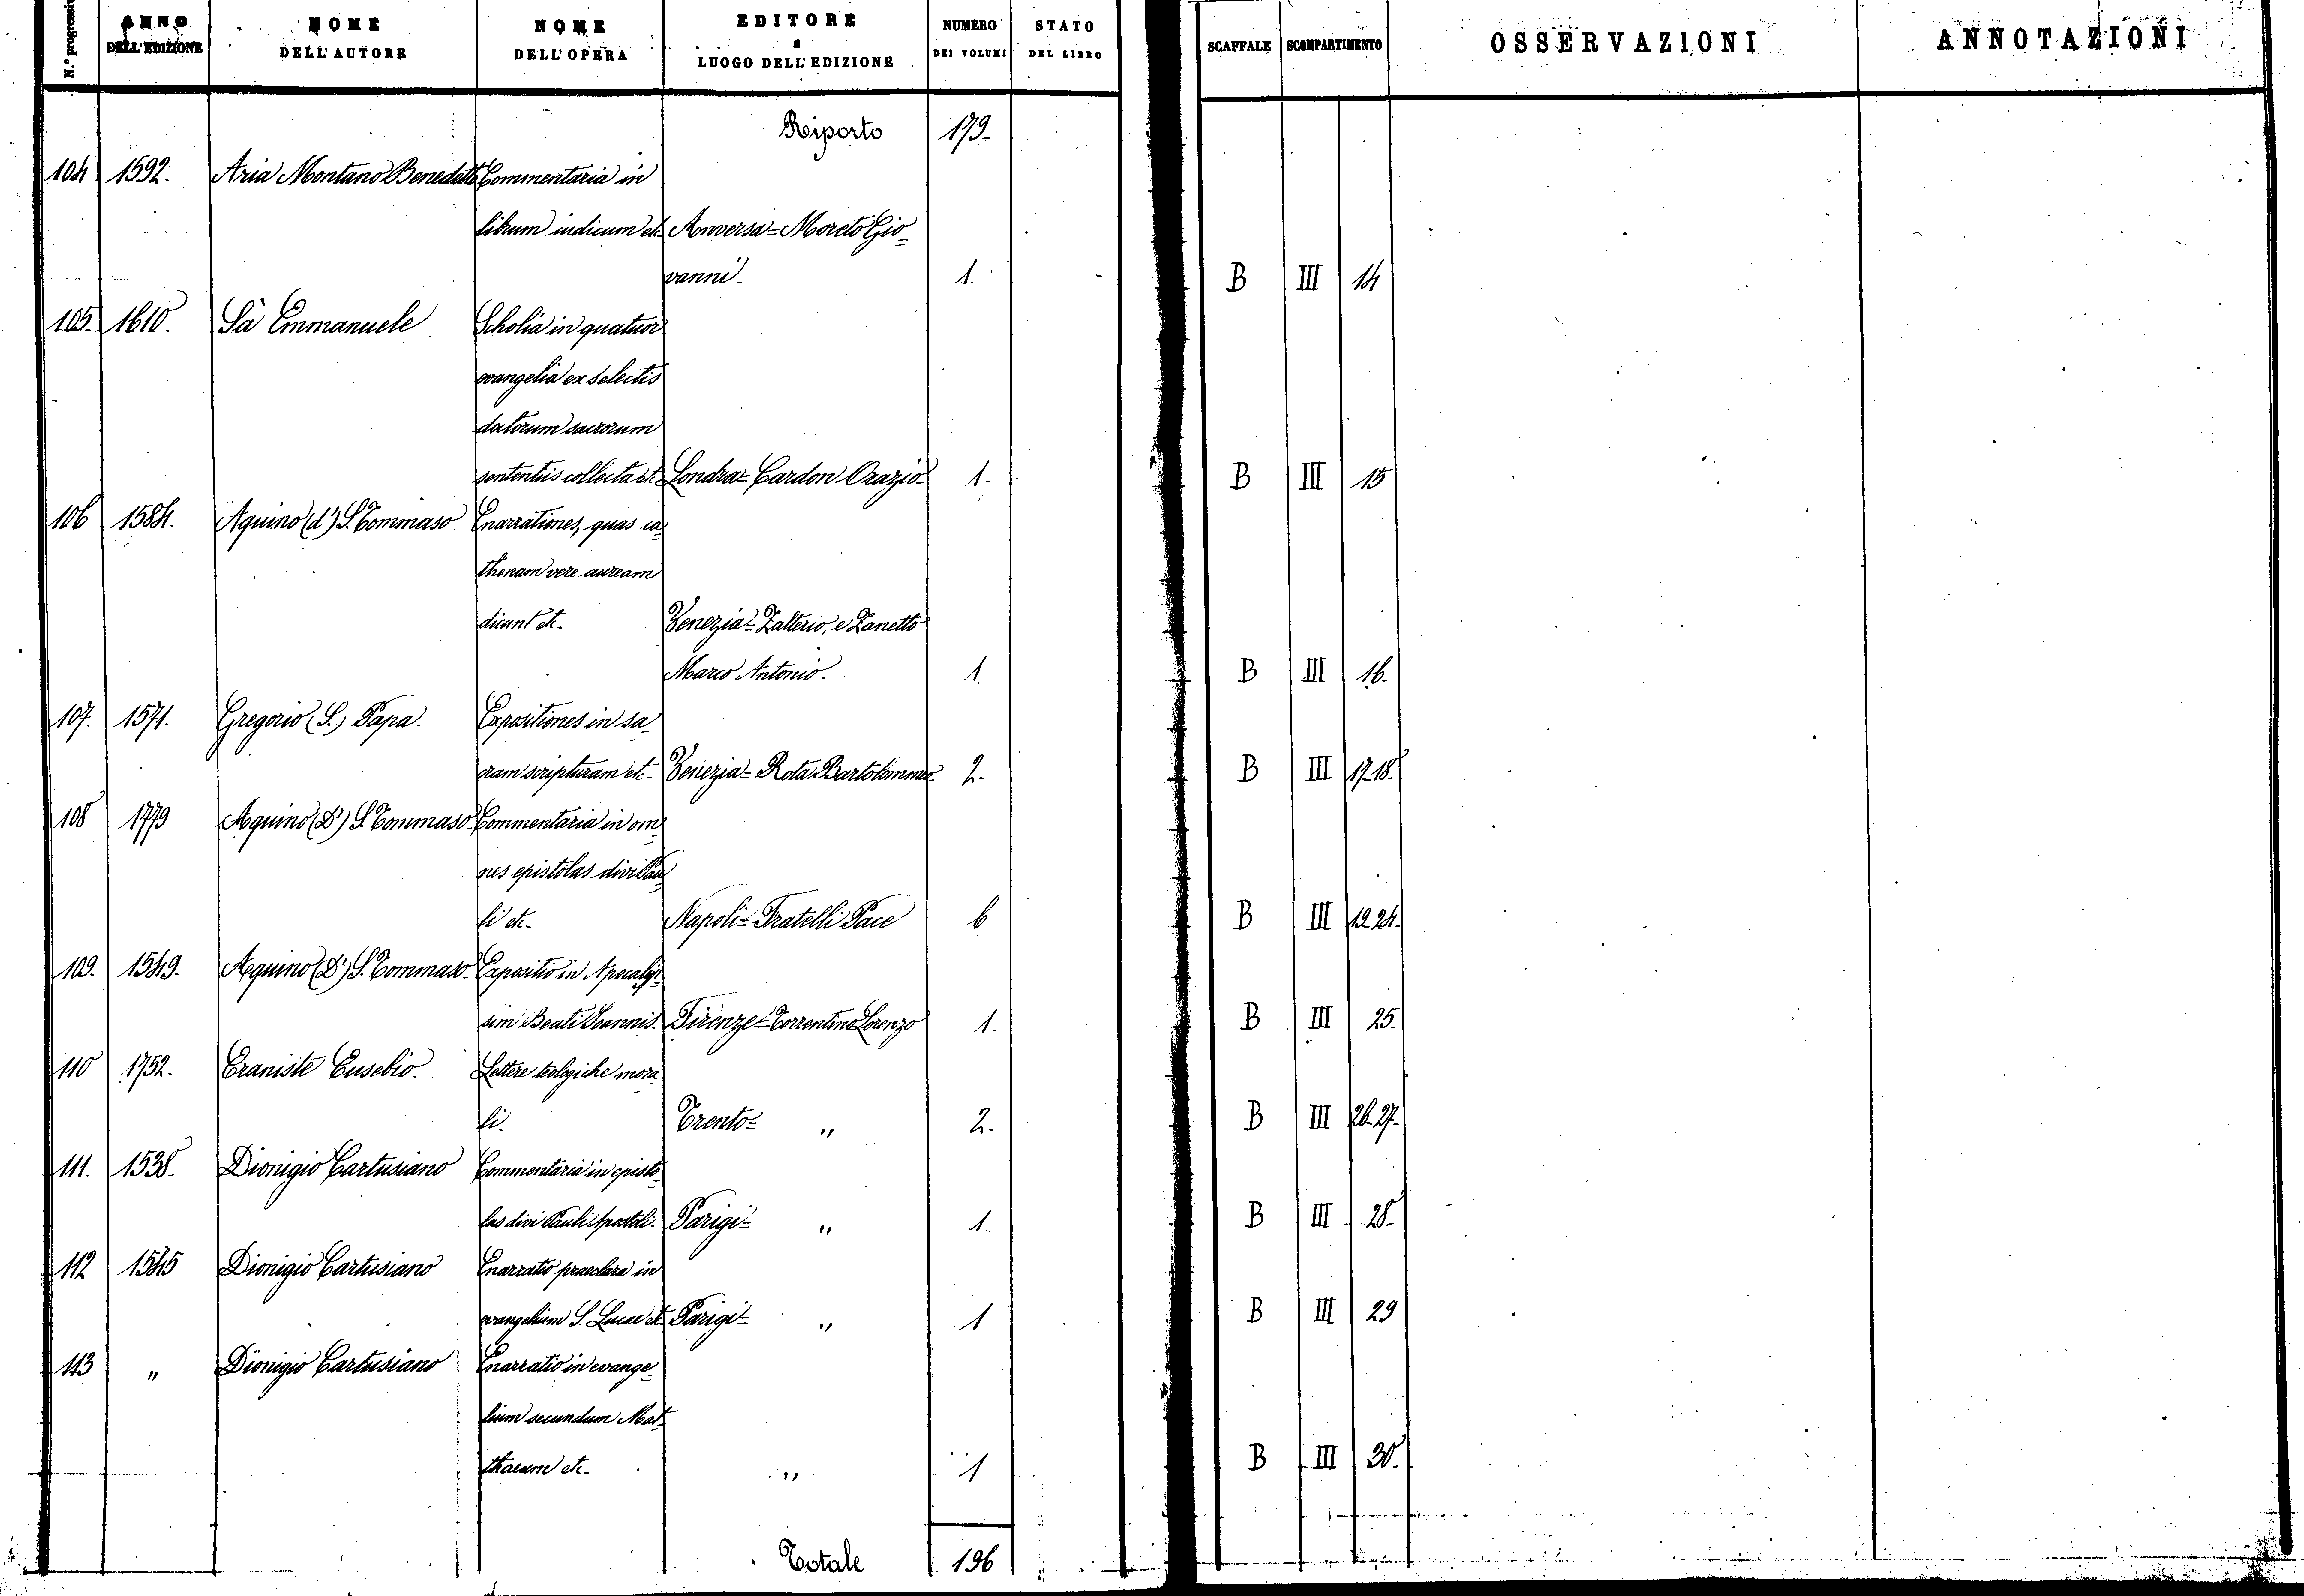 N.º progressivo
ANNO DELL'EDIZIONE
NOME DELL'AUTORE
NOME DELL'OPERA
EDITORE e LUOGO DELL'EDIZIONE
NUMERO DEI VOLUMI
STATO DEL LIBRO
SCAFFALE
SCOMPARTIMENTO
OSSERVAZIONI
ANNOTAZIONI
Riporto 179.
104 1592. Aria Montano Benedetto Commentaria in
librum iudicum etc. Anversa = Moreto Gio-
vanni. 1. B III 14
105. 1610. Sà Emmanuele Scholia in quatuor
evangelia ex selectis
doctorum sacrorum
sententiis collecta etc. Londra = Cardon Orazio 1. B III 15
106 1584. Aquino (d') S. Tommaso Enarrationes, quas ca-
thenam vere auream
dicunt etc. Venezia = Zalterio, e Zanetto
Marco Antonio. 1. B III 16.
107. 1571. Gregorio (S.) Papa. Expositiones in sa-
cram scripturam etc. Venezia = Rota Bartolommeo 2. B III 17.18.
108 1779 Aquino (D') S. Tommaso Commentaria in om-
nes epistolas divi Pau-
li etc. Napoli = Fratelli Pace 6 B III 19.24.
109. 1549. Aquino (D') S. Tommaso. Expositio in Apocalip-
sim Beati Joannis. Firenze = Torrentino Lorenzo 1. B III 25.
110 1752. Eraniste Eusebio. Lettere teologiche mora-
li. Trento = " 2. B III 26.27.
111. 1538. Dionigio Cartusiano Commentaria in episto-
las divi Pauli Apostoli. Parigi = " 1. B III 28.
112 1545 Dionigio Cartusiano Enarratio praeclara in
evangelium S. Lucae etc. Parigi = " 1 B III 29
113 " Dionigio Cartusiano Enarratio in evange-
lium secundum Mat-
thaeum etc. " 1 B III 30.
Totale 196